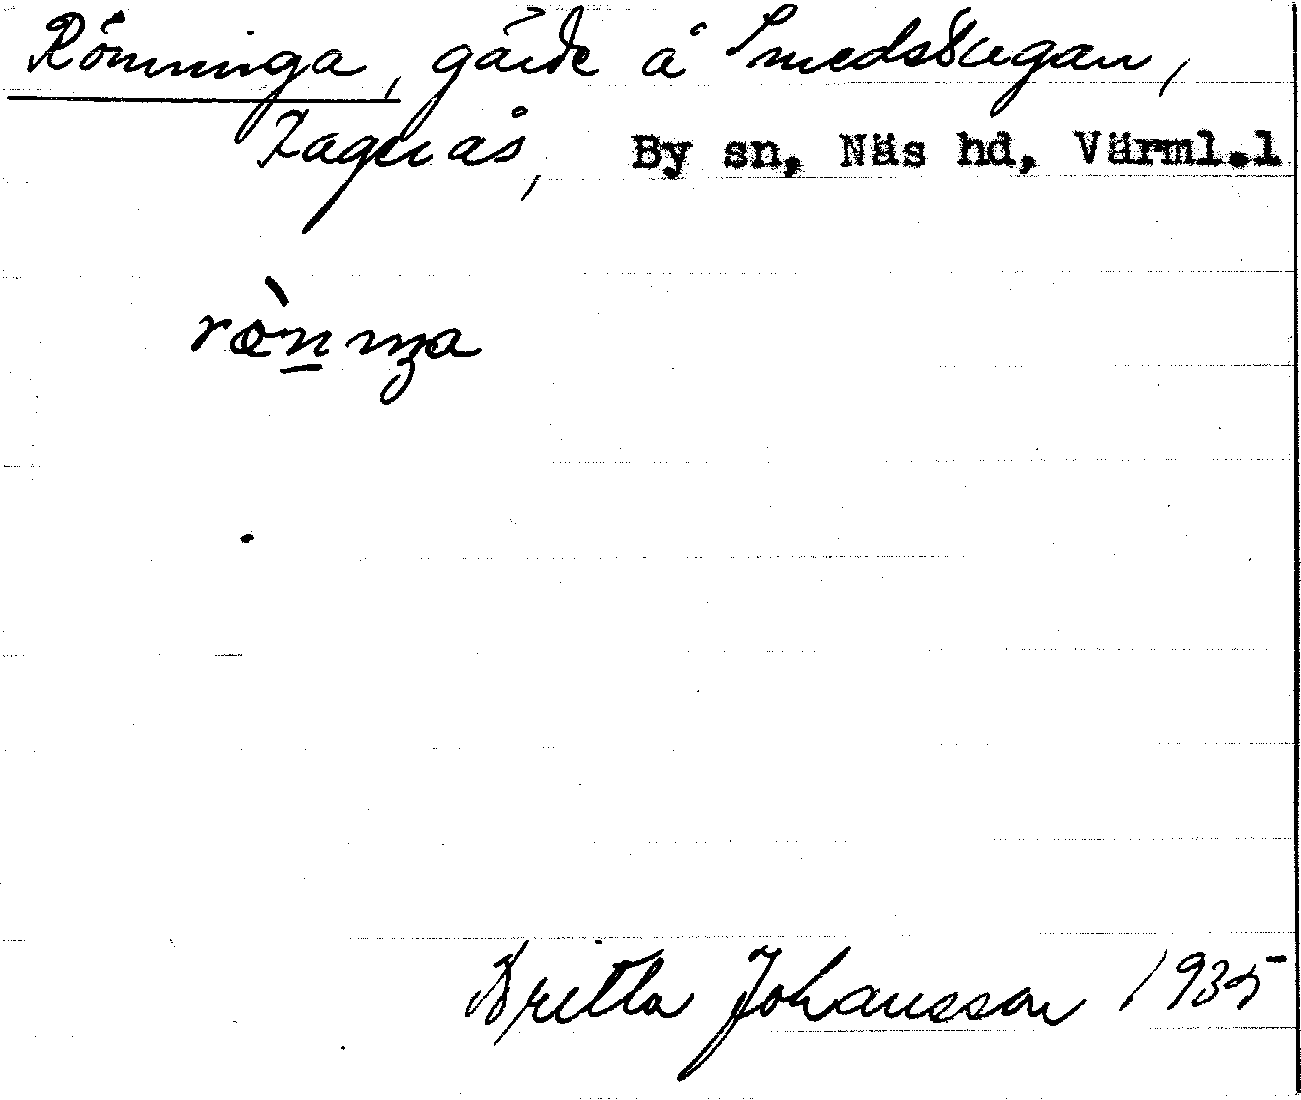 Rönninga, gärde å Smedstugan,
Ragnås, By sn, Näs hd, Värml.l
Britta Johansson 1935